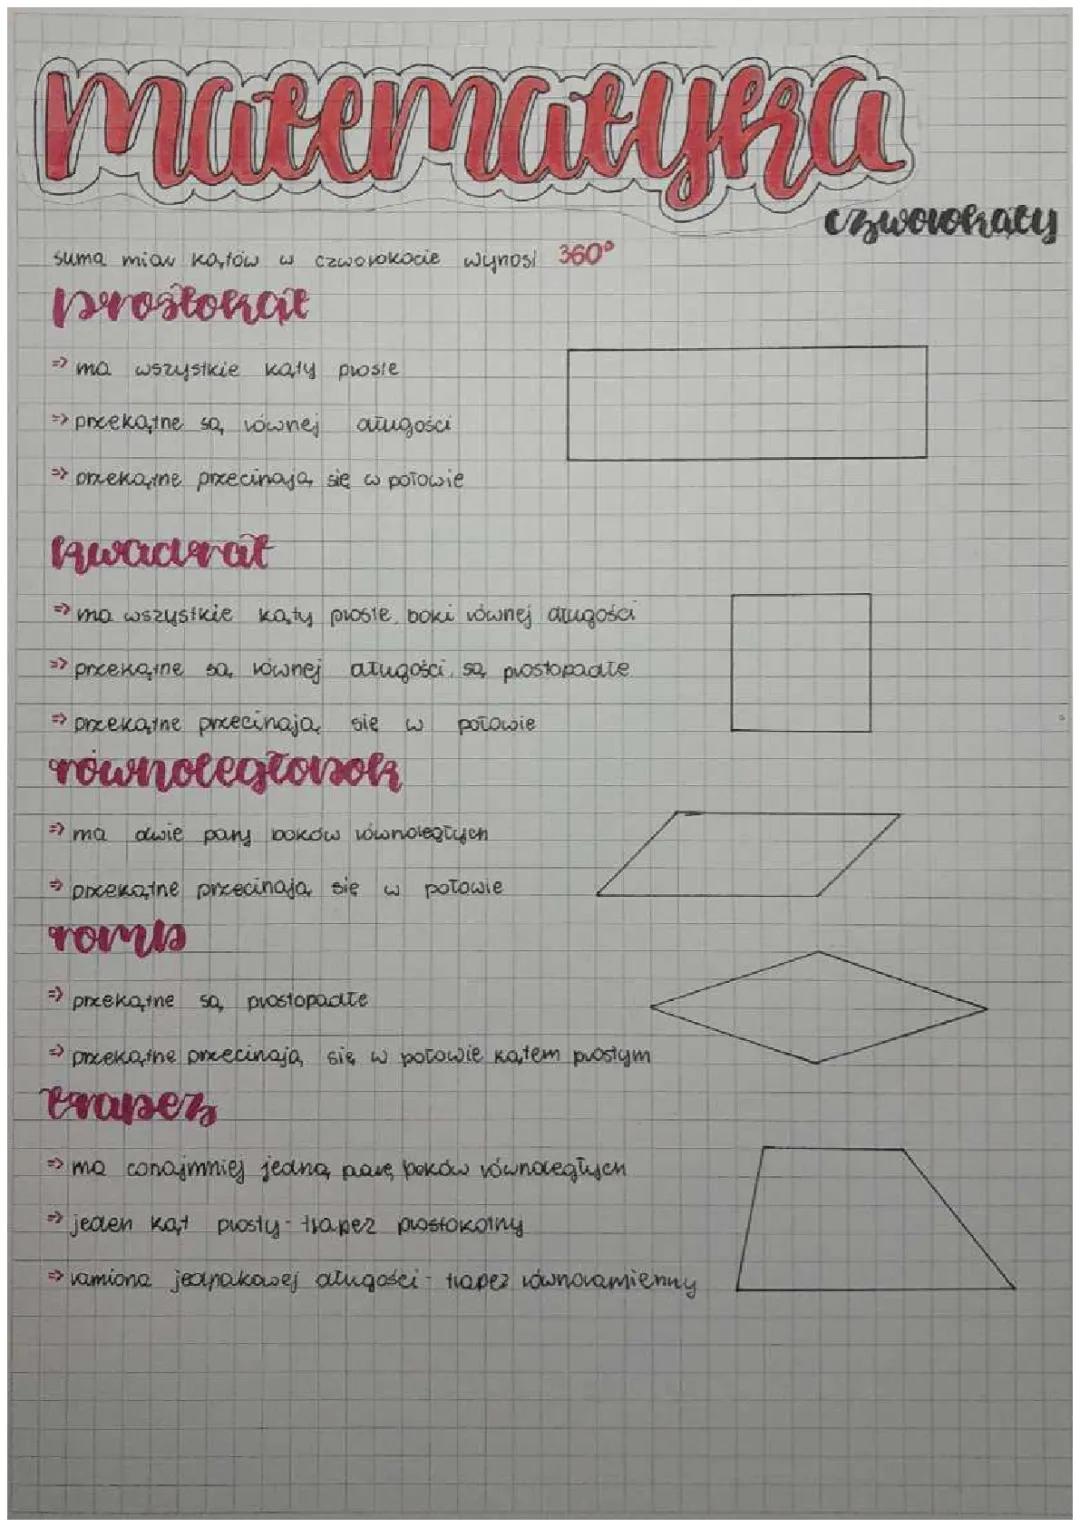 matematyka
czworokąty
suma miar kątów w czworokącie wynosi 360°
prostokąt
=> ma wszystkie kąty proste
=> przekątne są równej długości
=> przekątne przecinają się w połowie
kwadrat
=> ma wszystkie kąty proste, boki równej długości
=> przekątne są równej długości, są prostopadłe
=> przekątne przecinają się w połowie
równoległobok
=> ma dwie pary boków równoległych
=> przekątne przecinają się w połowie
romb
=> przekątne są prostopadłe
=> przekątne przecinają się w połowie kątem prostym
trapez
=> ma conajmniej jedną parę boków równoległych
=> jeden kąt prosty - trapez prostokątny
=> ramiona jednakowej długości - trapez równoramienny